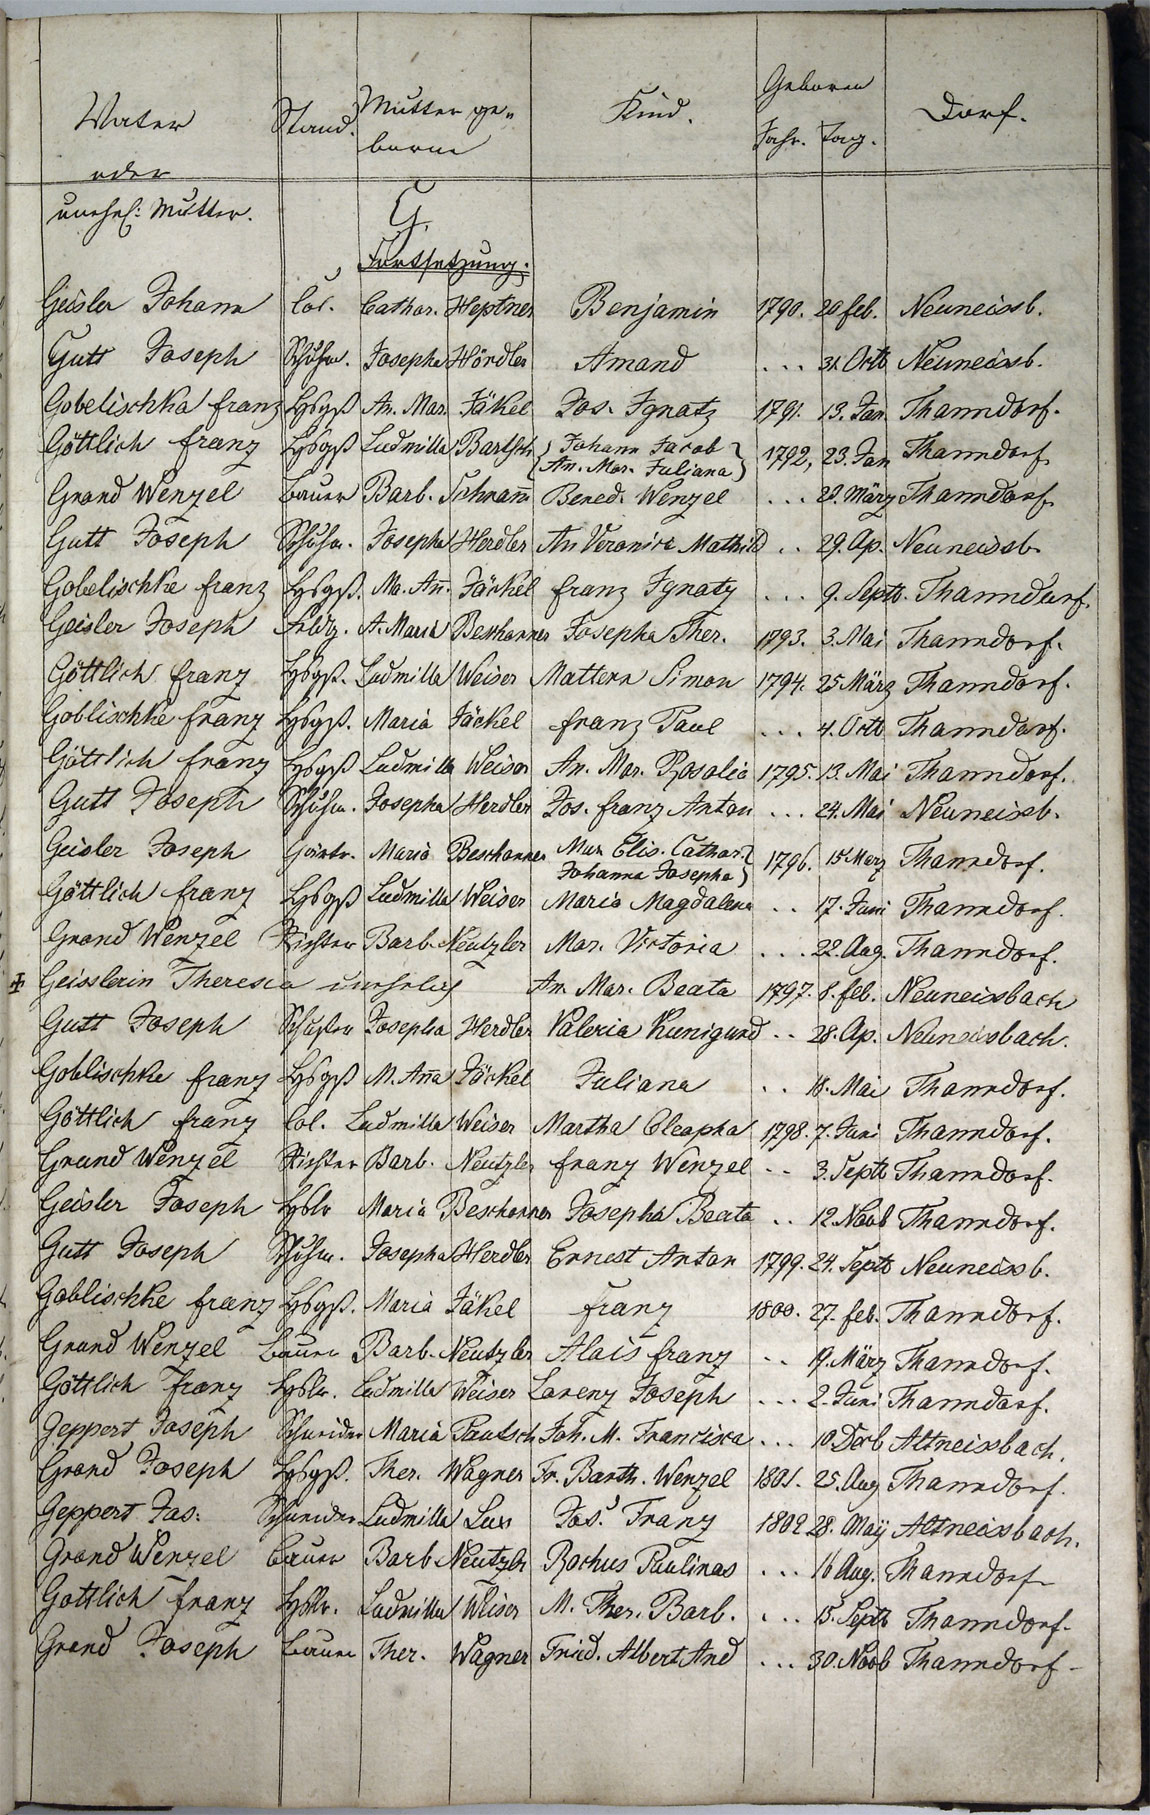 Vater
oder
unehel: Mutter.
Stand.
Mutter ge-
borne
Kind.
Geboren
Jahr. Tag.
Dorf.
G.
Fortsetzung.
Geisler Johann Col. Cathar. Heptner Benjamin 1790. 20 feb. Neuneissb.
Gutt Joseph Schuhm. Josepha Hördler Amand ... 31. Octb Neuneissb.
Gobelischka franz Hsgß An. Mar. Jäkel Jos. Ignatz 1791. 13. Jan. Thanndorf.
Göttlich franz Hsgß Ludmilla Bartsch { Johann Jacob
An. Mar. Juliana } 1792, 23. Jan Thanndorf
Grand Wenzel Bauer Barb. Schram̄ Bened. Wenzel ... 28. März Thanndorf
Gutt Joseph Schuhm. Josepha Herdler An Veronica Mathild .. 29. Ap. Neuneissb
Gobelischke franz Hsgß. Ma. An̄. Jäckel franz Ignatz ... 9. Septb. Thanndorf.
Geisler Joseph A. Maria Beschorner Josepha Ther. 1793. 3. Mai Thanndorf.
Göttlich franz Hsgß. Ludmilla Weiser Mattern Simon 1794. 25 März Thanndorf.
Goblischke franz Hsgß. Maria Jäckel franz Paul ... 4. Octb Thanndorf.
Göttlich franz Hsgß Ludmilla Weiser An. Mar. Rosalia 1795. 13. Mai Thanndorf.
Gutt Joseph Schuhm. Josepha Herdler Jos. franz Anton ... 24. Mai Neuneissb.
Geisler Joseph Gärtr. Maria Beschorner Mar. Elis. Cathar.
Johanna Josepha } 1796. 15 Merz Thanndorf.
Göttlich franz Hsgß Ludmilla Weiser Maria Magdalena .. 17. Juni Thanndorf.
Grand Wenzel Richter Barb. Neutzler Mar. Victoria ... 22. Aug. Thanndorf.
Geisslerin Theresia unehelich An. Mar. Beata 1797. 8. feb. Neuneissbach
Gutt Joseph Schuster Josepha Herdler Valeria Kunigund .. 28. Ap. Neuneissbach.
Goblischke franz Hsgß M. An̄a Jäckel Juliana .. 18. Mai Thanndorf.
Göttlich franz Col. Ludmilla Weiser Martha Cleopha 1798. 7. Juni Thanndorf.
Grand Wenzel Richter Barb. Neutzler franz Wenzel .. 3. Septb Thanndorf.
Geisler Joseph Hslr Maria Beschorner Josepha Beata .. 12. Novb Thanndorf.
Gutt Joseph Schuhm. Josepha Herdler Ernest Anton 1799. 24. Septb Neuneissb.
Goblischke franz Hsgß. Maria Jäkel franz 1800. 27. feb. Thanndorf.
Grand Wenzel Bauer Barb. Neutzler Alois franz .. 19. März Thanndorf.
Göttlich franz Hslr. Ludmilla Weiser Lorenz Joseph ... 2. Juni Thanndorf.
Geppert Joseph Schneider Maria Pautsch Joh. M. Francisca ... 10 Decb Altneissbach.
Grand Joseph Hsgß. Ther. Wagner Fr. Barth. Wenzel 1801. 25. Aug Thanndorf.
Geppert Jos: Schneider Ludmilla Lux Jos. Franz 1802 28. Maÿ Altneissbach.
Grand Wenzel Bauer Barb Neutzler Rochus Paulinas ... 16 Aug. Thanndorf
Gottlich franz Hslr. Ludmilla Weiser M. Ther. Barb. ... 15. Septb Thanndorf.
Grand Joseph Bauer Ther. Wagner Fried. Albert And ... 30. Novb Thanndorf